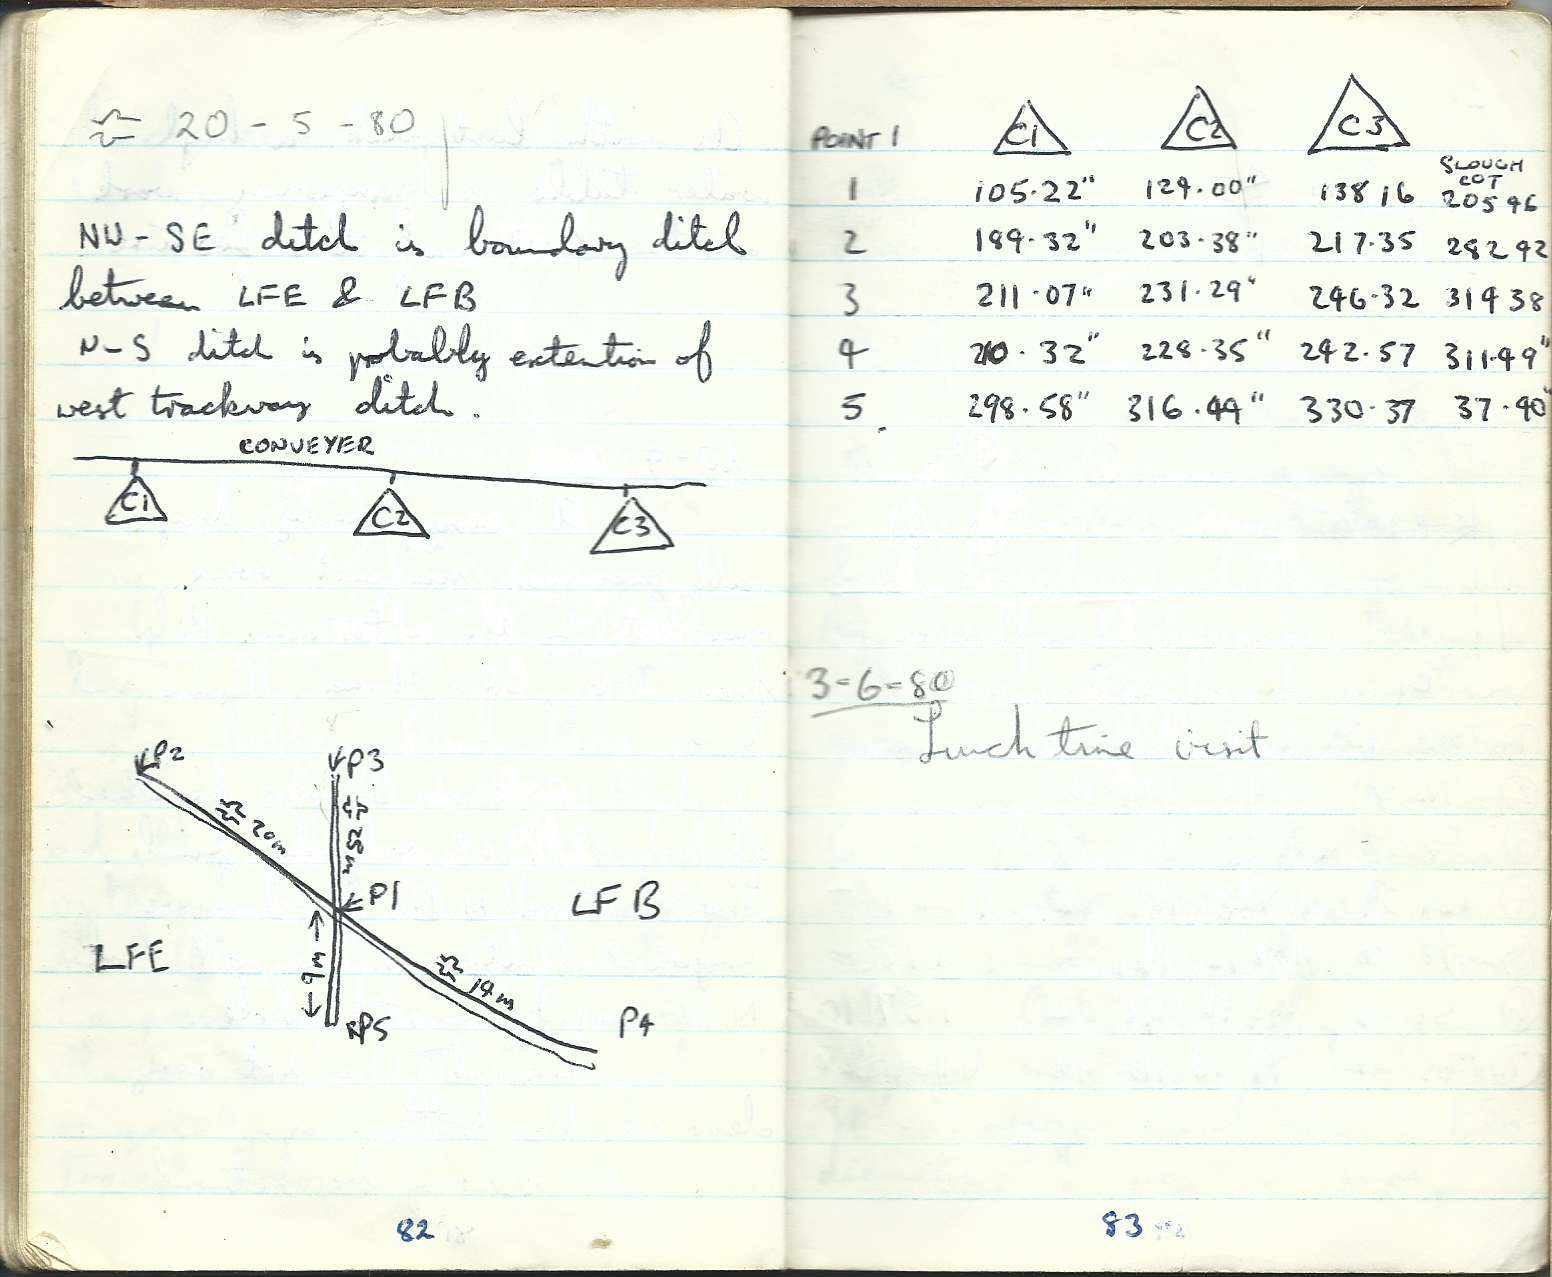 ≈ 20 - 5 - 80
NW - SE ditch is boundary ditch
between LFE & LFB
N-S ditch is probably extention of
west trackway ditch.
CONVEYER
C1 C2 C3
P2 P3
≈ 20m ≈ 28m
P1
LFB
LFE
9m
≈ 14m
P5 P4
82
POINT 1 C1 C2 C3 SLOUGH COT
1 105.22" 124.00" 138 16 205 46
2 189.32" 203.38" 217.35 282 42
3 211.07" 231.29" 246.32 314 38
4 210.32" 228.35" 242.57 311.49"
5 298.58" 316.44" 330.37 37.40"
3-6-80
Lunch time visit
83